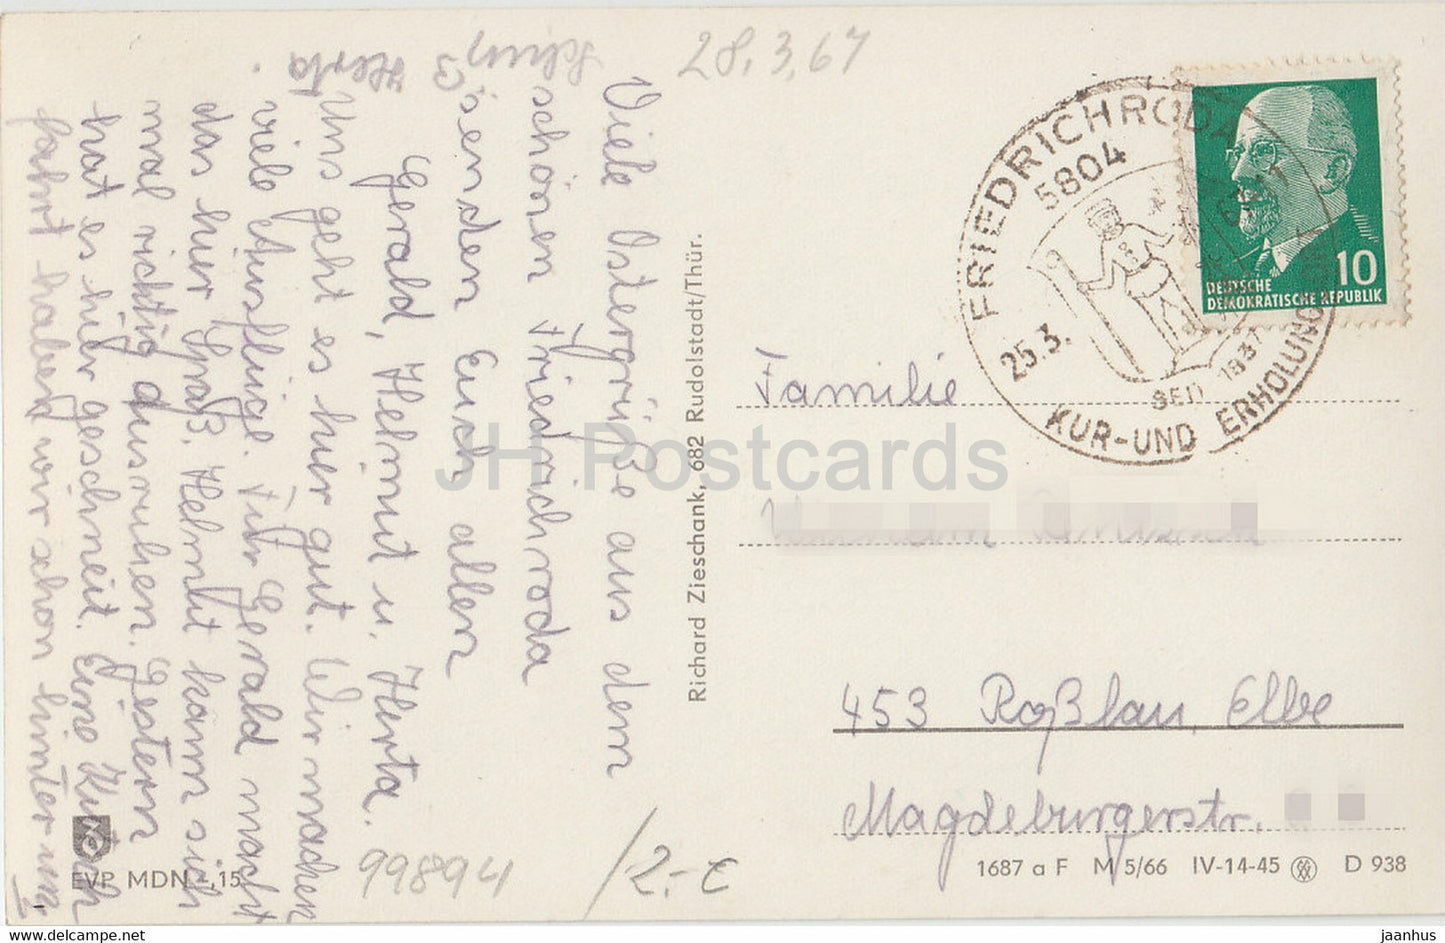 28.3.67
Viele Ostergrüße aus dem
schönen Friedrichroda
senden Euch allen
Gerald, Helmut u. Herta.
Uns geht es hier gut. Wir machen
viele Ausflüge. Für Gerald macht
das hier Spaß. Helmut kann sich
mal richtig ausruhen. Gestern
hat es hier geschneit. Eine Kutsch
fahrt haben wir schon hinter uns.
Herta
Richard Zieschank, 682 Rudolstadt/Thür.
FRIEDRICHRODA
5804
25.3.
SEIT 1837
KUR-UND ERHOLUNG
10
DEUTSCHE
DEMOKRATISCHE REPUBLIK
Familie
453 Roßlau, Elbe
Magdeburgerstr.
EVP MDN -,15
99894
/2.-€
1687 a F M 5/66 IV-14-45 D 938
JH Postcards
www.delcampe.net
jaanhus